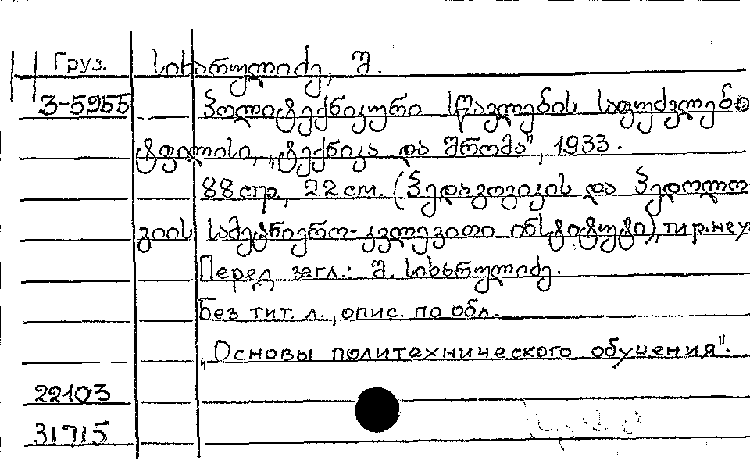 Груз. სიხარულიძე, შ.
3-5955 პოლიტექნიკური სწავლების საფუძვლები
ტფილისი, „ტექნიკა და შრომა", 1933.
88 стр, 22 см. (პედაგოგიკის და პედოლო
გიის სამეცნიერო-კვლევითი ინსტიტუტი), тир. неу
Перед загл.: შ. სიხარულიძე.
Без тит. л., опис. по обл.
„Основы политехнического обучения".
22103
31715